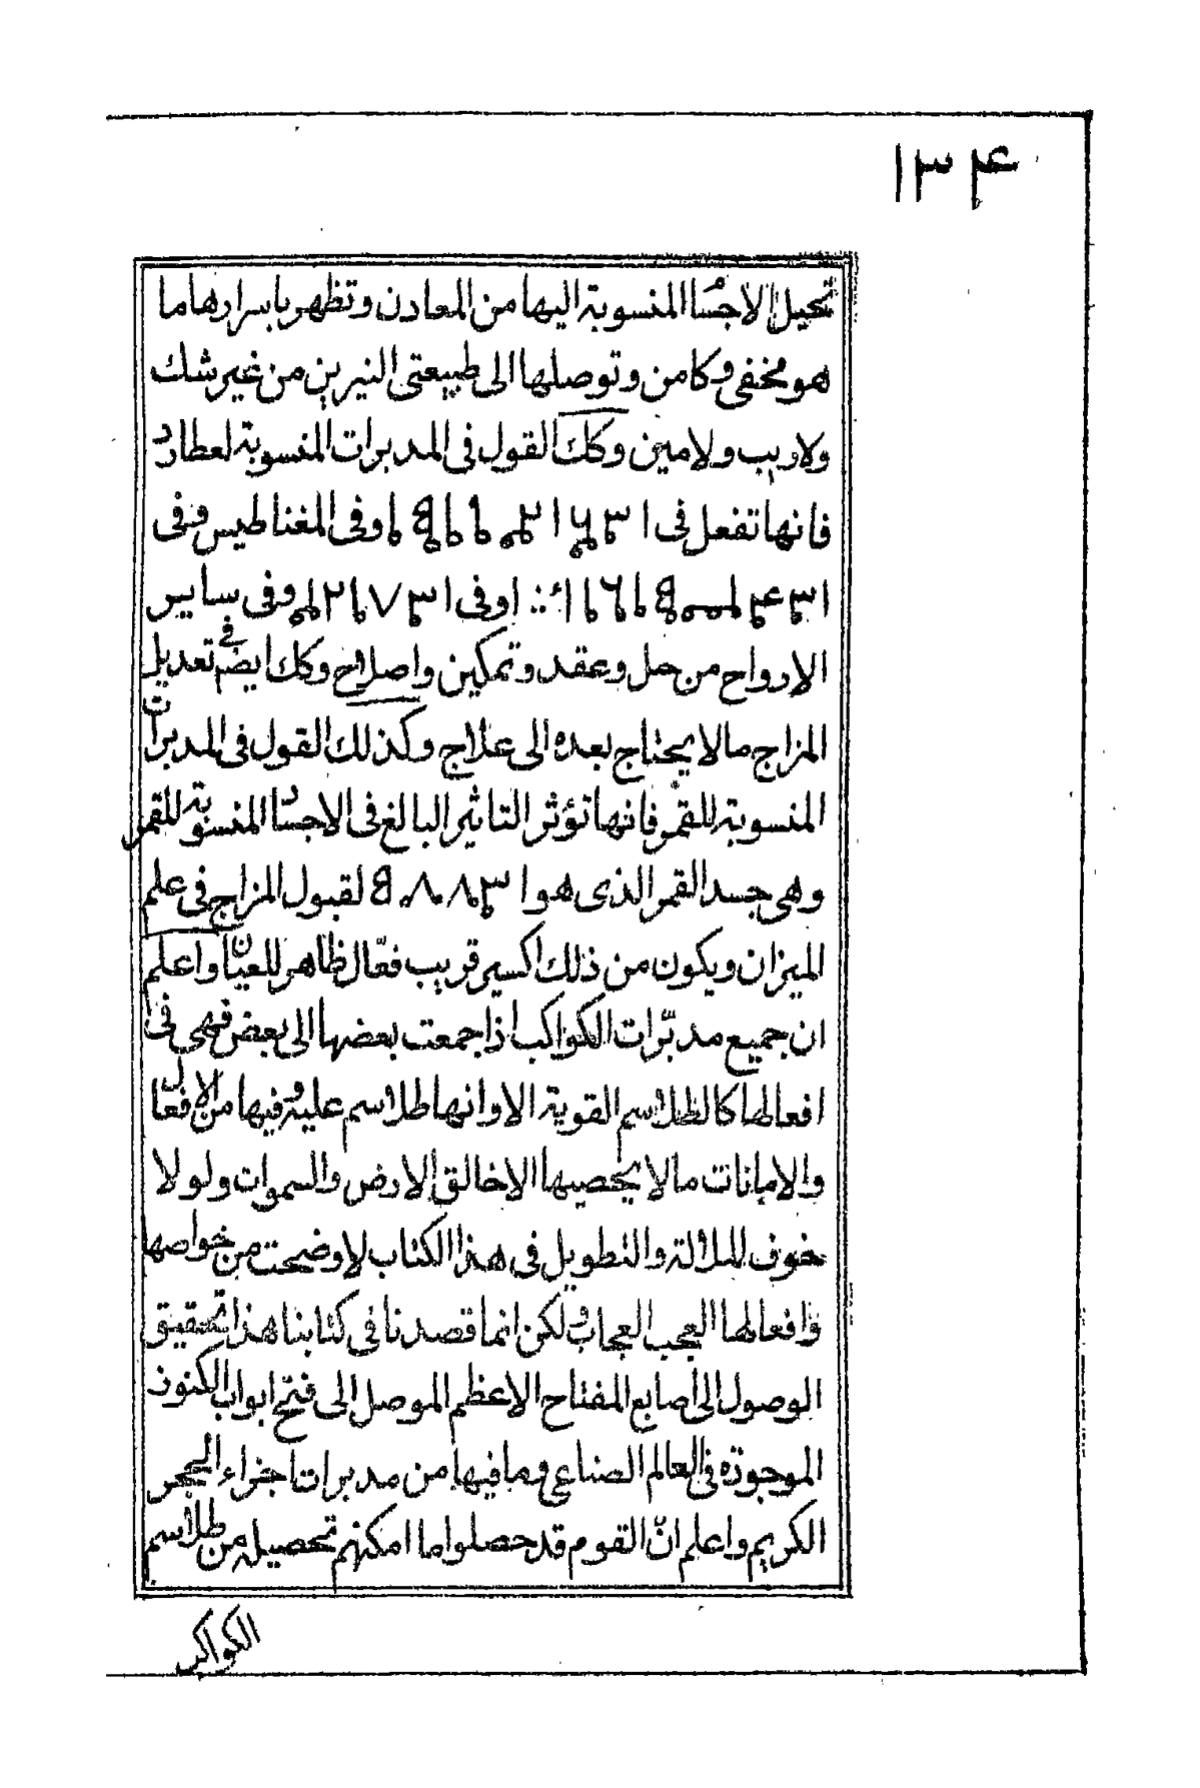 ١٣۴
تحيل الاجسا المنسوبة اليها من المعادن وتظهر باسرارها ما
هو مخفى وكامن وتوصلها الى طبيعتى النيرين من غير شك
ولا ريب ولا مين وكك القول فى المدبرات المنسوبة لعطارد
فانها تفعل فى وفى المغناطيس وفى
اوفى وفى ساير
الارواح من حل وعقد وتمكين واصلاح وكك ايضم فى تعديل
المزاج مالا يحتاج بعده الى علاج وكذلك القول فى المدبرات
المنسوبة للقمر فانها تؤثر التاثير البالغ فى الاجساد المنسوبة للقمر
وهى جسد القمر الذى هو لقبول المزاج فى علم
الميزان ويكون من ذلك اكسير قريب فعّال ظاهر للعيان واعلم
ان جميع مدبّرات الكواكب اذا جمعت بعضها الى بعض فهى فى
افعالها كالطلاسم القوية الا وانها طلاسم علية وفيها من الافعال
والامانات مالا يحصيها الا خالق الارض والسموات ولولا
خوف الملالة والتطويل فى هذا الكتاب لاوضحت من خواصها
وافعالها العجب العجاب ولكن انما قصدنا فى كتابنا هذا تحقيق
الوصول الى اصابع المفتاح الاعظم الموصل الى فتح ابواب الكنوز
الموجوده فى العالم الصناعى وما فيها من مدبرات اجزاء الحجر
الكريم واعلم انّ القوم قد حصلوا ما امكنهم تحصيله من طلاسم
الكواكب